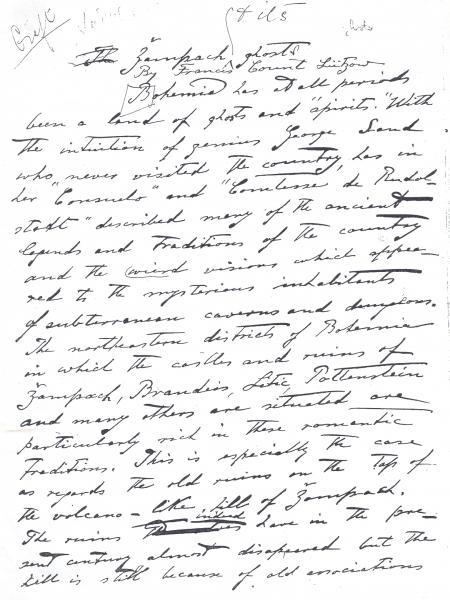 & its
The Žampach ghosts
By Francis Count Lützow
Bohemia has at all periods
been a land of ghosts and "spirits." With
the intuition of genius George Sand
who never visited the country, has in
her "Consuelo" and "Comtesse de Rudol-
stadt" described many of the ancient
legends and traditions of the country
and the weird visions which appea-
red to the mysterious inhabitants
of subterranean caverns and dungeons.
The northeastern districts of Bohemia
in which the castles and ruins of
Žampach, Brandeis, Litic, Pottenstein
and many others are situated are
particularly rich in these romantic
traditions. This is especially the case
as regards the old ruins on the top of
the volcano-like hill of Žampach.
The ruins indeed have in the pre-
sent century almost disappeared but the
hill is still because of old associations